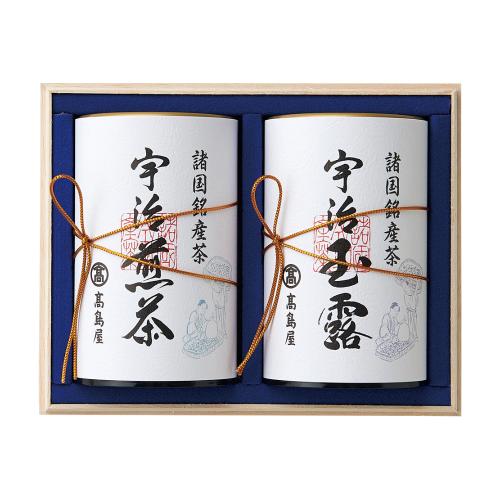 諸国銘産茶
宇治煎茶
髙
髙島屋
諸国銘産茶
宇治玉露
髙
髙島屋